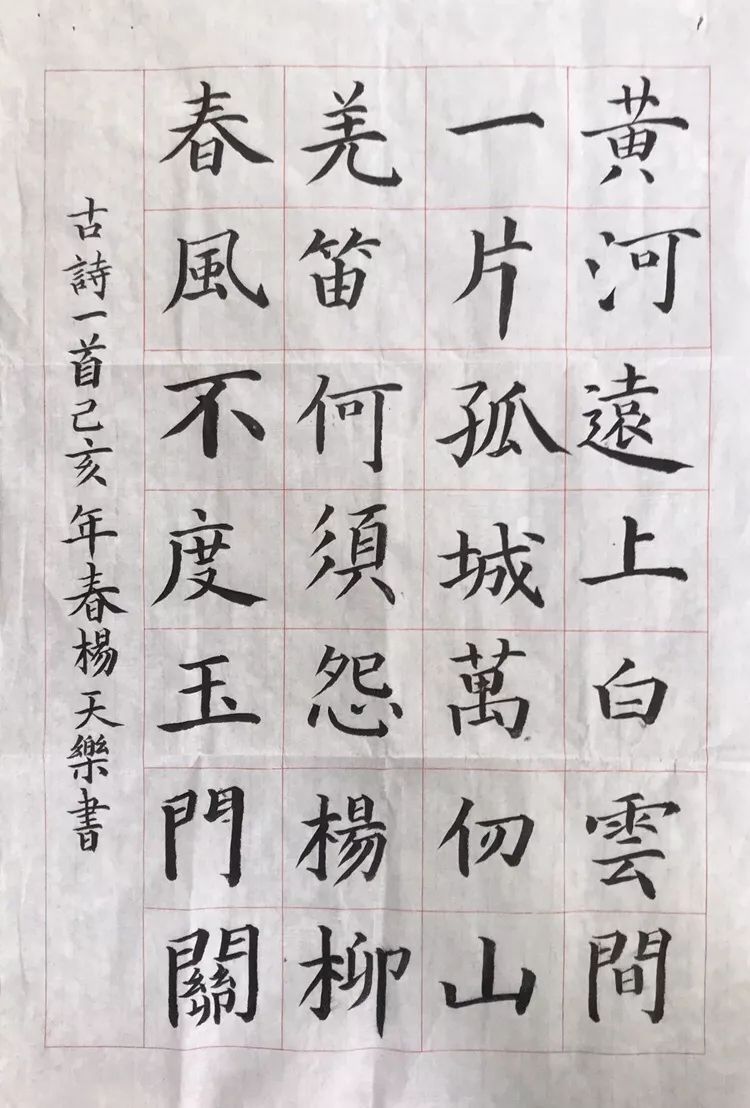 黄河遠上白雲間
一片孤城萬仞山
羌笛何須怨楊柳
春風不度玉門關
古詩一首己亥年春楊天樂書